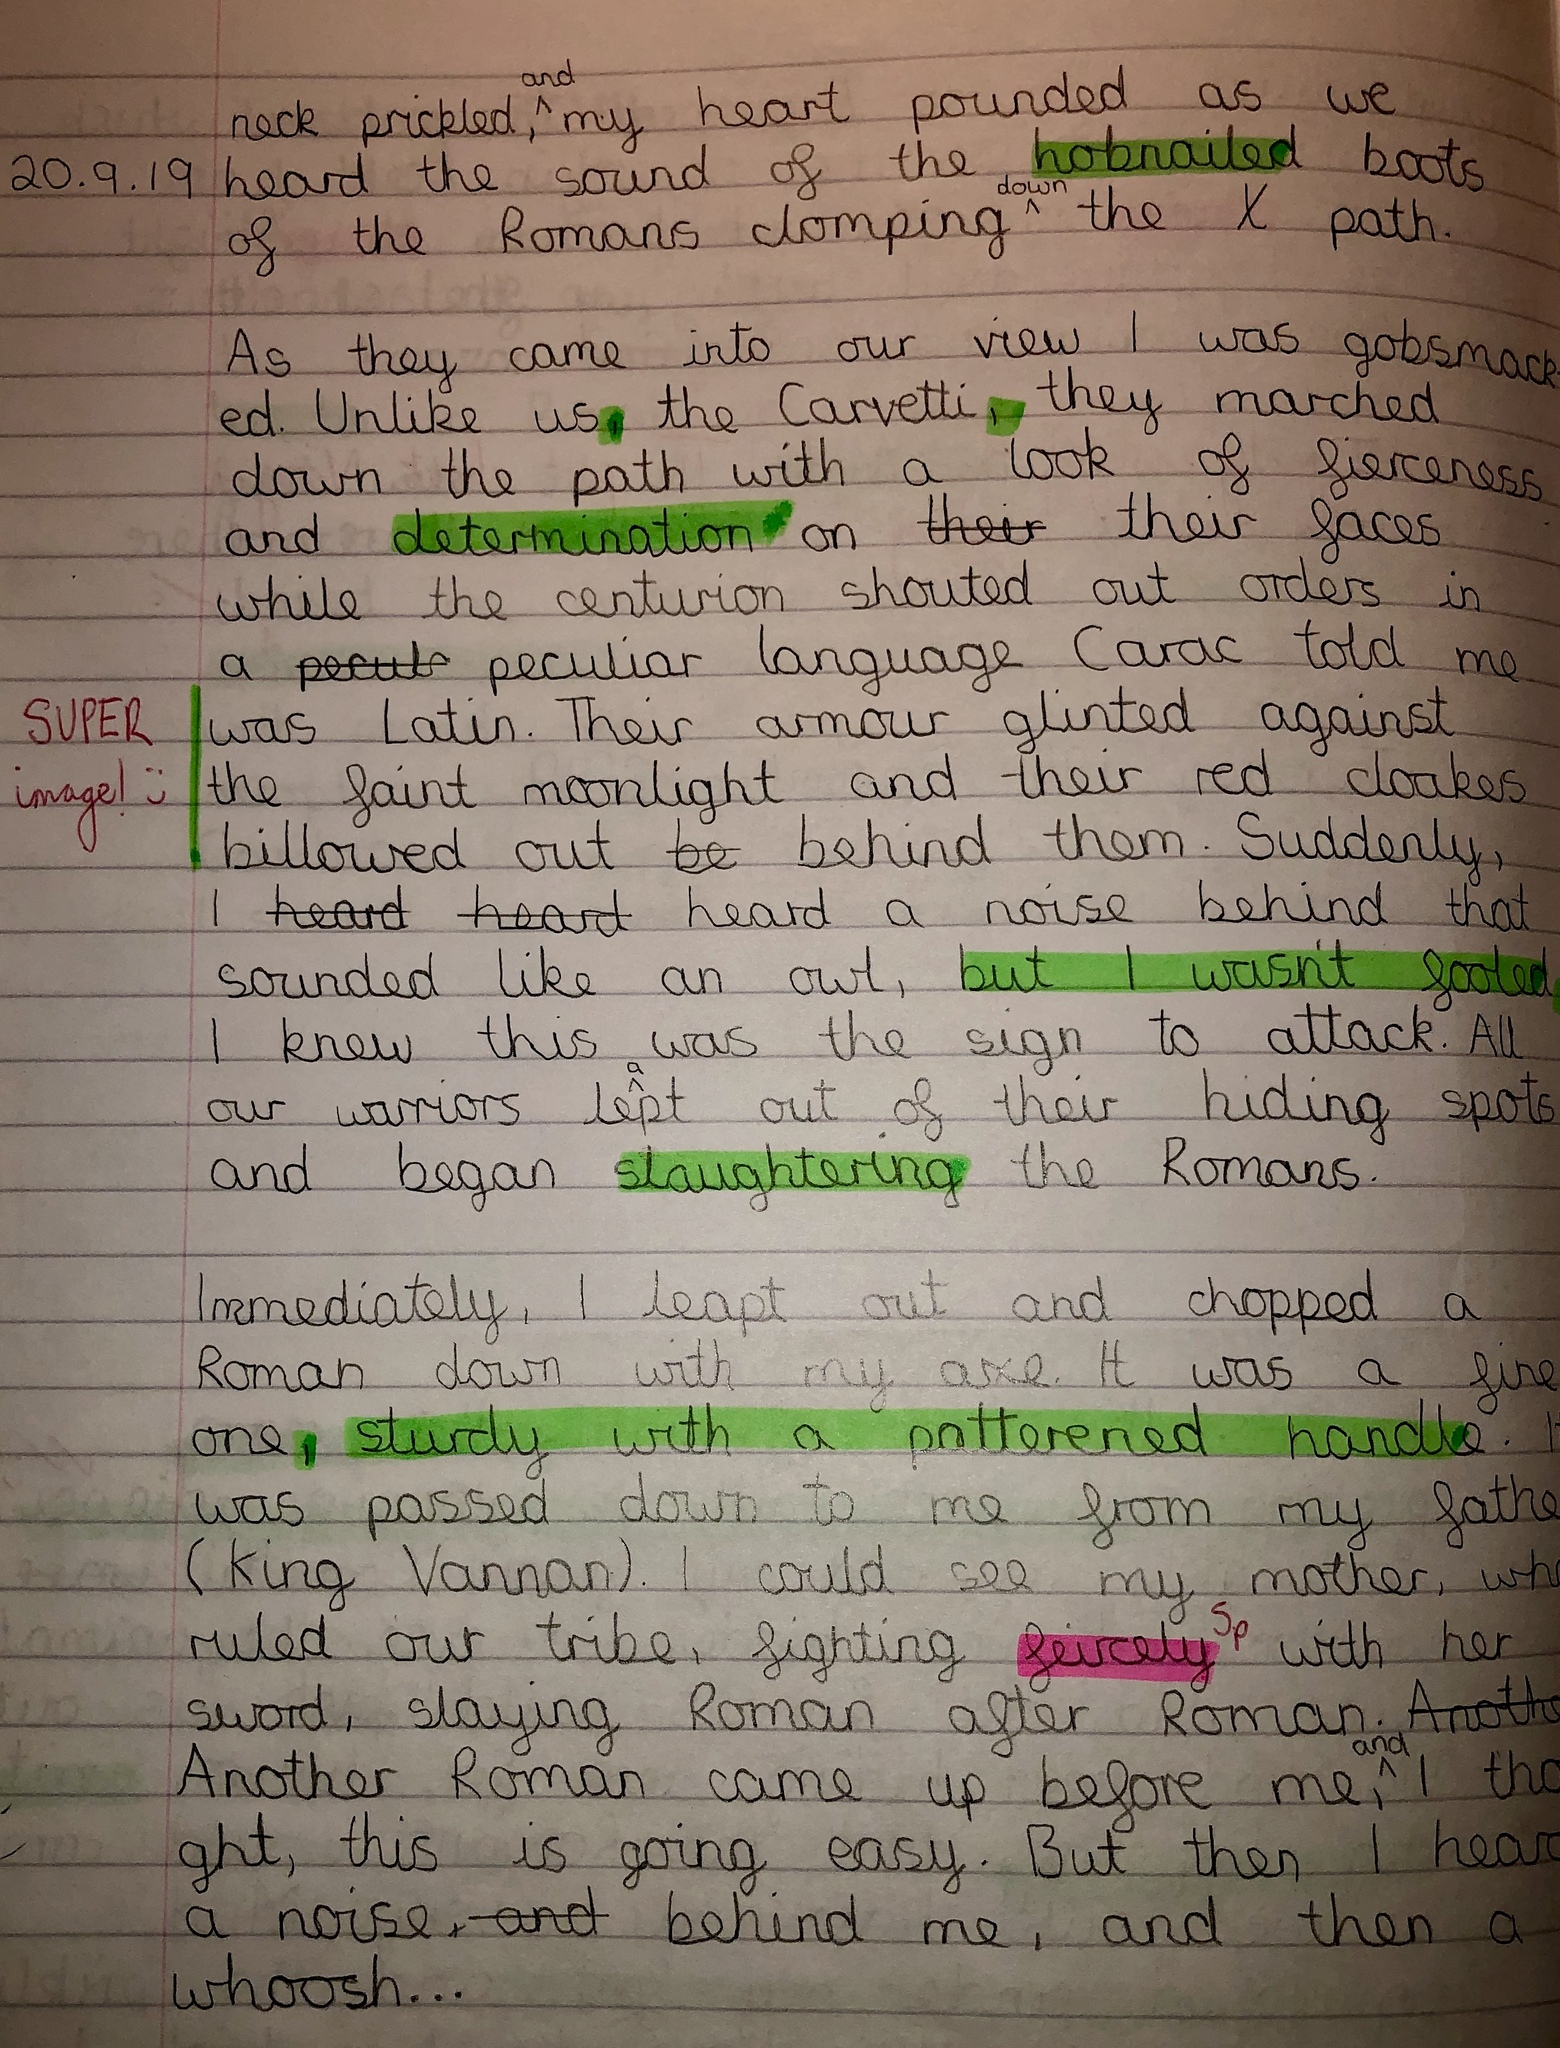 and
neck prickled, ^ my heart pounded as we
20.9.19 heard the sound of the hobnailed boots
down
of the Romans clomping ^ the X path.
As they came into our view I was gobsmack
ed. Unlike us, the Carvetti, they marched
down the path with a look of fierceness
and determination on their their faces
while the centurion shouted out orders in
a pecul peculiar language Carac told me
SUPER was Latin. Their armour glinted against
image! the faint moonlight and their red cloakes
billowed out be behind them. Suddenly,
I heard heard heard a noise behind that
sounded like an owl, but I wasn't fooled
I knew this was the sign to attack. All
a
our warriors le^pt out of their hiding spots
and began slaughtering the Romans.
Immediately, I leapt out and chopped a
Roman down with my axe. It was a fine
one, sturdy with a patterened handle. I
was passed down to me from my fathe
(King Vannan). I could see my mother, wh
ruled our tribe, fighting feircely Sp with her
sword, slaying Roman after Roman. Anothe
and
Another Roman came up before me, ^ I tho
ght, this is going easy. But then I hear
a noise, and behind me, and then a
whoosh...